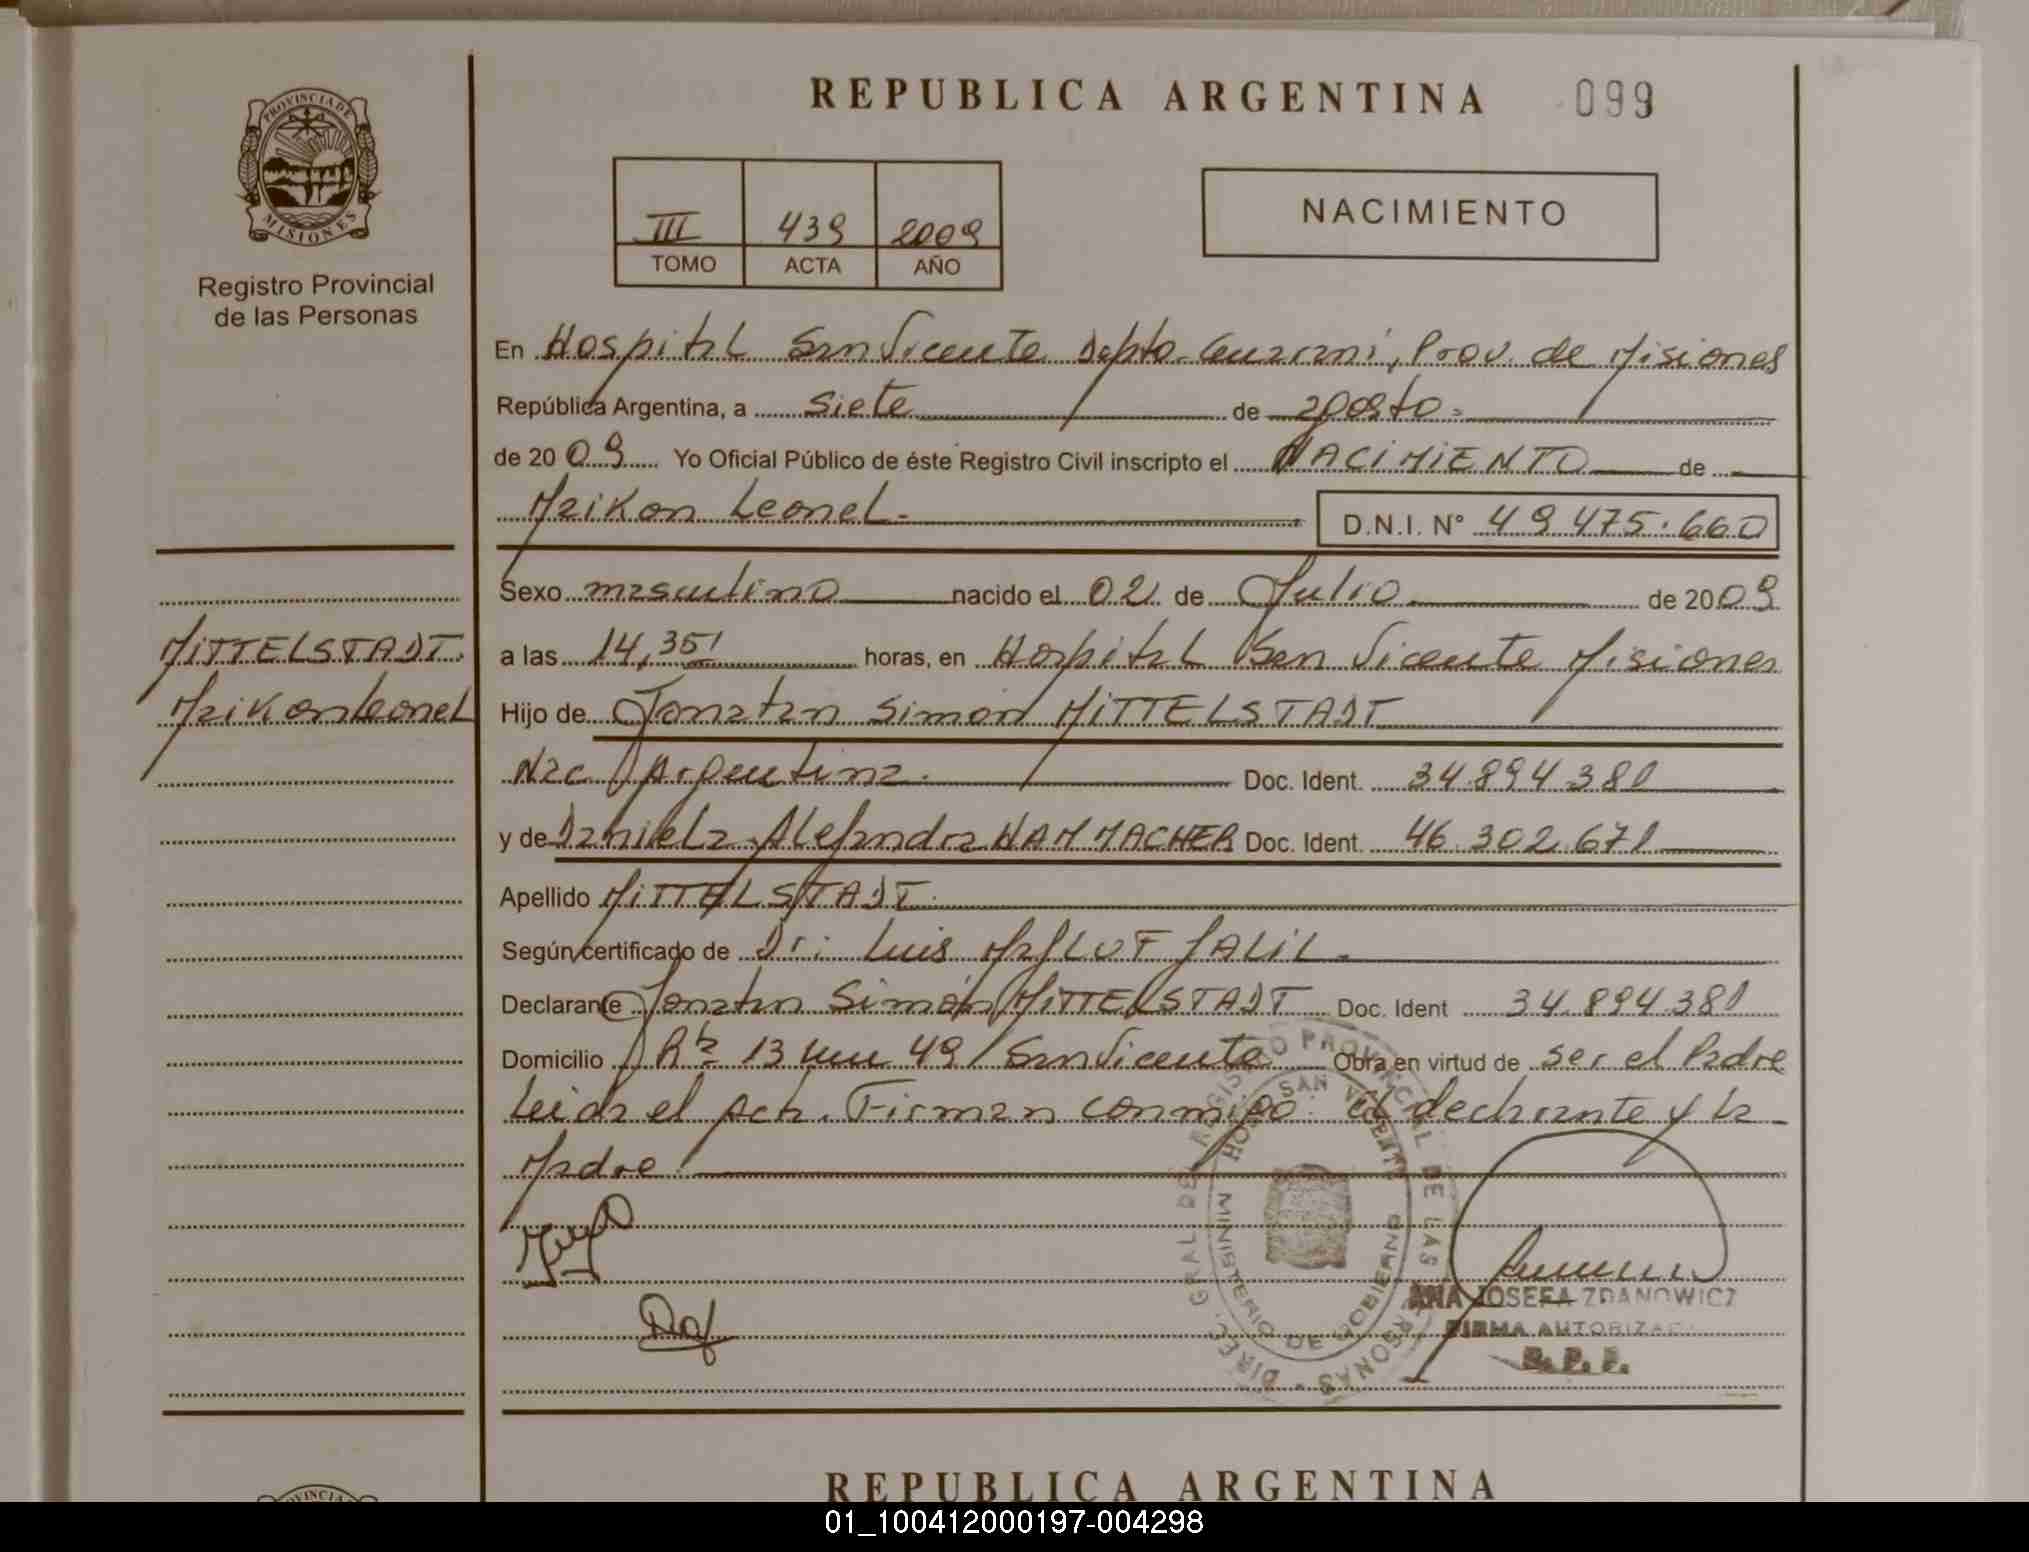 REPUBLICA ARGENTINA 099
PROVINCIA DE
MISIONES
Registro Provincial
de las Personas
III 439 2009
TOMO ACTA AÑO
NACIMIENTO
En Hospital San Vicente Dpto. Guaraní, Prov. de Misiones
República Argentina, a siete de agosto.
de 2009 Yo Oficial Público de éste Registro Civil inscripto el NACIMIENTO de
Maikon Leonel. D.N.I. N° 49.475.660
Sexo masculino nacido el 02 de Julio de 2009
MITTELSTADT. a las 14,35' horas, en Hospital San Vicente Misiones
Maikon Leonel Hijo de Jonatan Simon MITTELSTADT
Nac Argentina. Doc. Ident. 34.894.381
y de Daniela Alejandra HAMMACHER Doc. Ident. 46.302.671
Apellido MITTELSTADT.
Según certificado de Dr: Luis MAJLUF JALIL.
Declarante Jonatan Simón MITTELSTADT Doc. Ident 34.894.381
Domicilio Rta 13 km 49 San Vicente Obra en virtud de ser el Padre
Leída el acta. Firman conmigo: el declarante y la
Madre.
DIREC. GRAL DEL REGISTRO PROVINCIAL DE LAS PERSONAS
HOSP SAN VICENTE
MINISTERIO DE GOBIERNO
ANA JOSEFA ZDANOWICZ
FIRMA AUTORIZADA
R. P. P.
PROVINCIA
REPUBLICA ARGENTINA
01_100412000197-004298